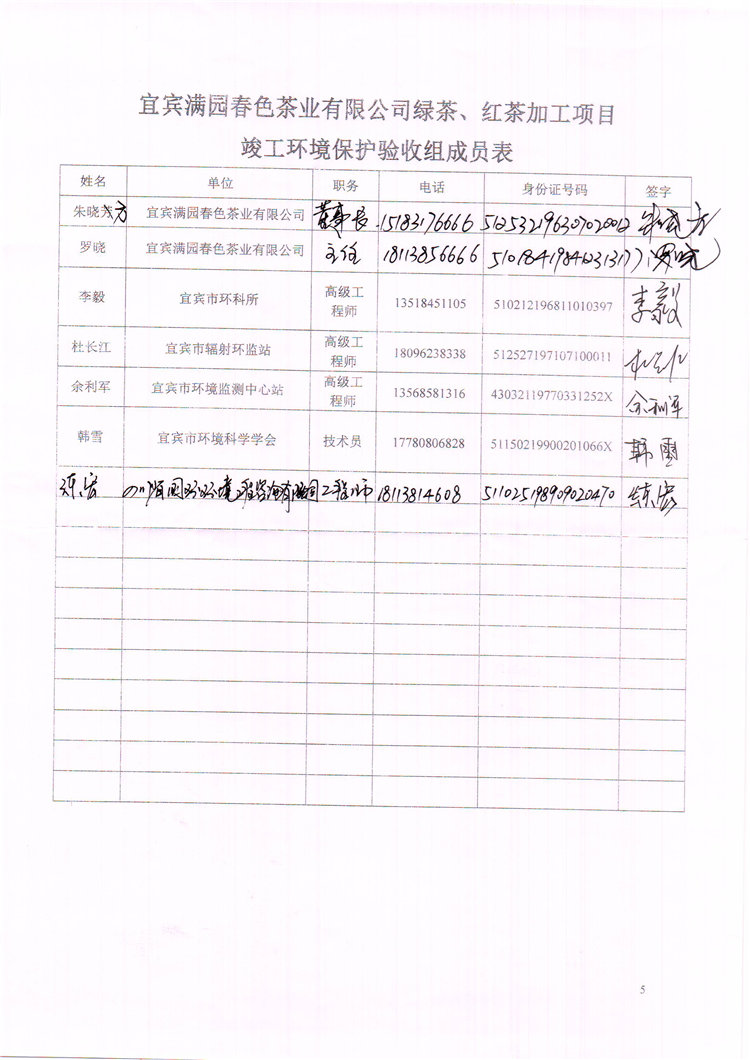 宜宾满园春色茶业有限公司绿茶、红茶加工项目
竣工环境保护验收组成员表
姓名 单位 职务 电话 身份证号码 签字
朱晓方 宜宾满园春色茶业有限公司 董事长 15183176666 512532196307020012 朱晓方
罗晓 宜宾满园春色茶业有限公司 主任 18113856666 罗晓
李毅 宜宾市环科所 高级工程师 13518451105 510212196811010397 李毅
杜长江 宜宾市辐射环监站 高级工程师 18096238338 512527197107100011 杜长江
余利军 宜宾市环境监测中心站 高级工程师 13568581316 43032119770331252X 余利军
韩雪 宜宾市环境科学学会 技术员 17780806828 51150219900201066X 韩雪
工程师 18113814608 511025198909020470
5